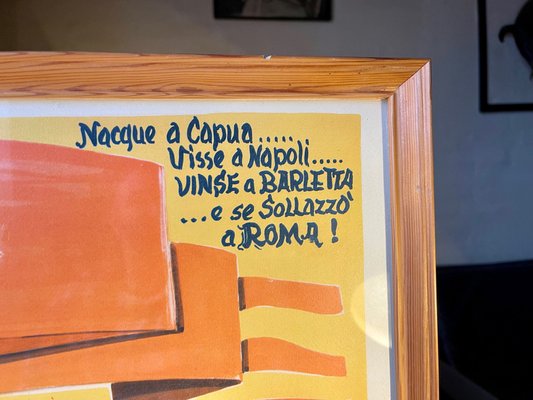 Nacque a Capua.....
Visse a Napoli.....
VINSE a BARLETTA
...e se SOLLAZZÒ
a ROMA!